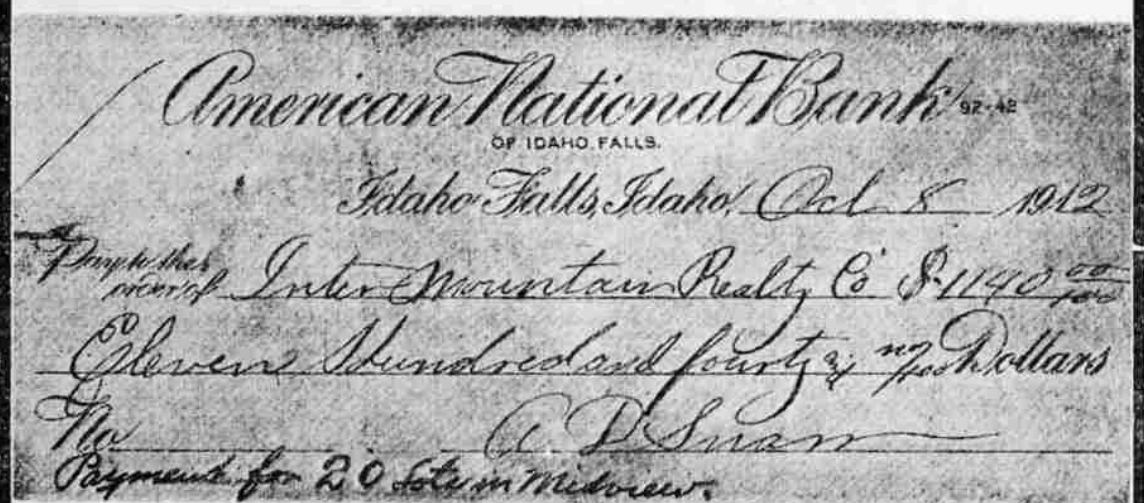 American National Bank 92-42
OF IDAHO FALLS.
Idaho Falls, Idaho, Oct 8 1912
Pay to the
order of Inter Mountain Realty Co $1140 00/100
Eleven Hundred and fourty & no/100 Dollars
No A D
Payment for 20 Lots in Midview.